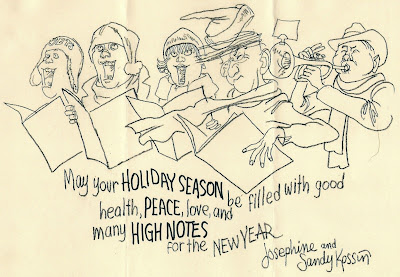 May your HOLIDAY SEASON be filled with good
health, PEACE, love, and
many HIGH NOTES
for the NEW YEAR
Josephine and
Sandy Kossin